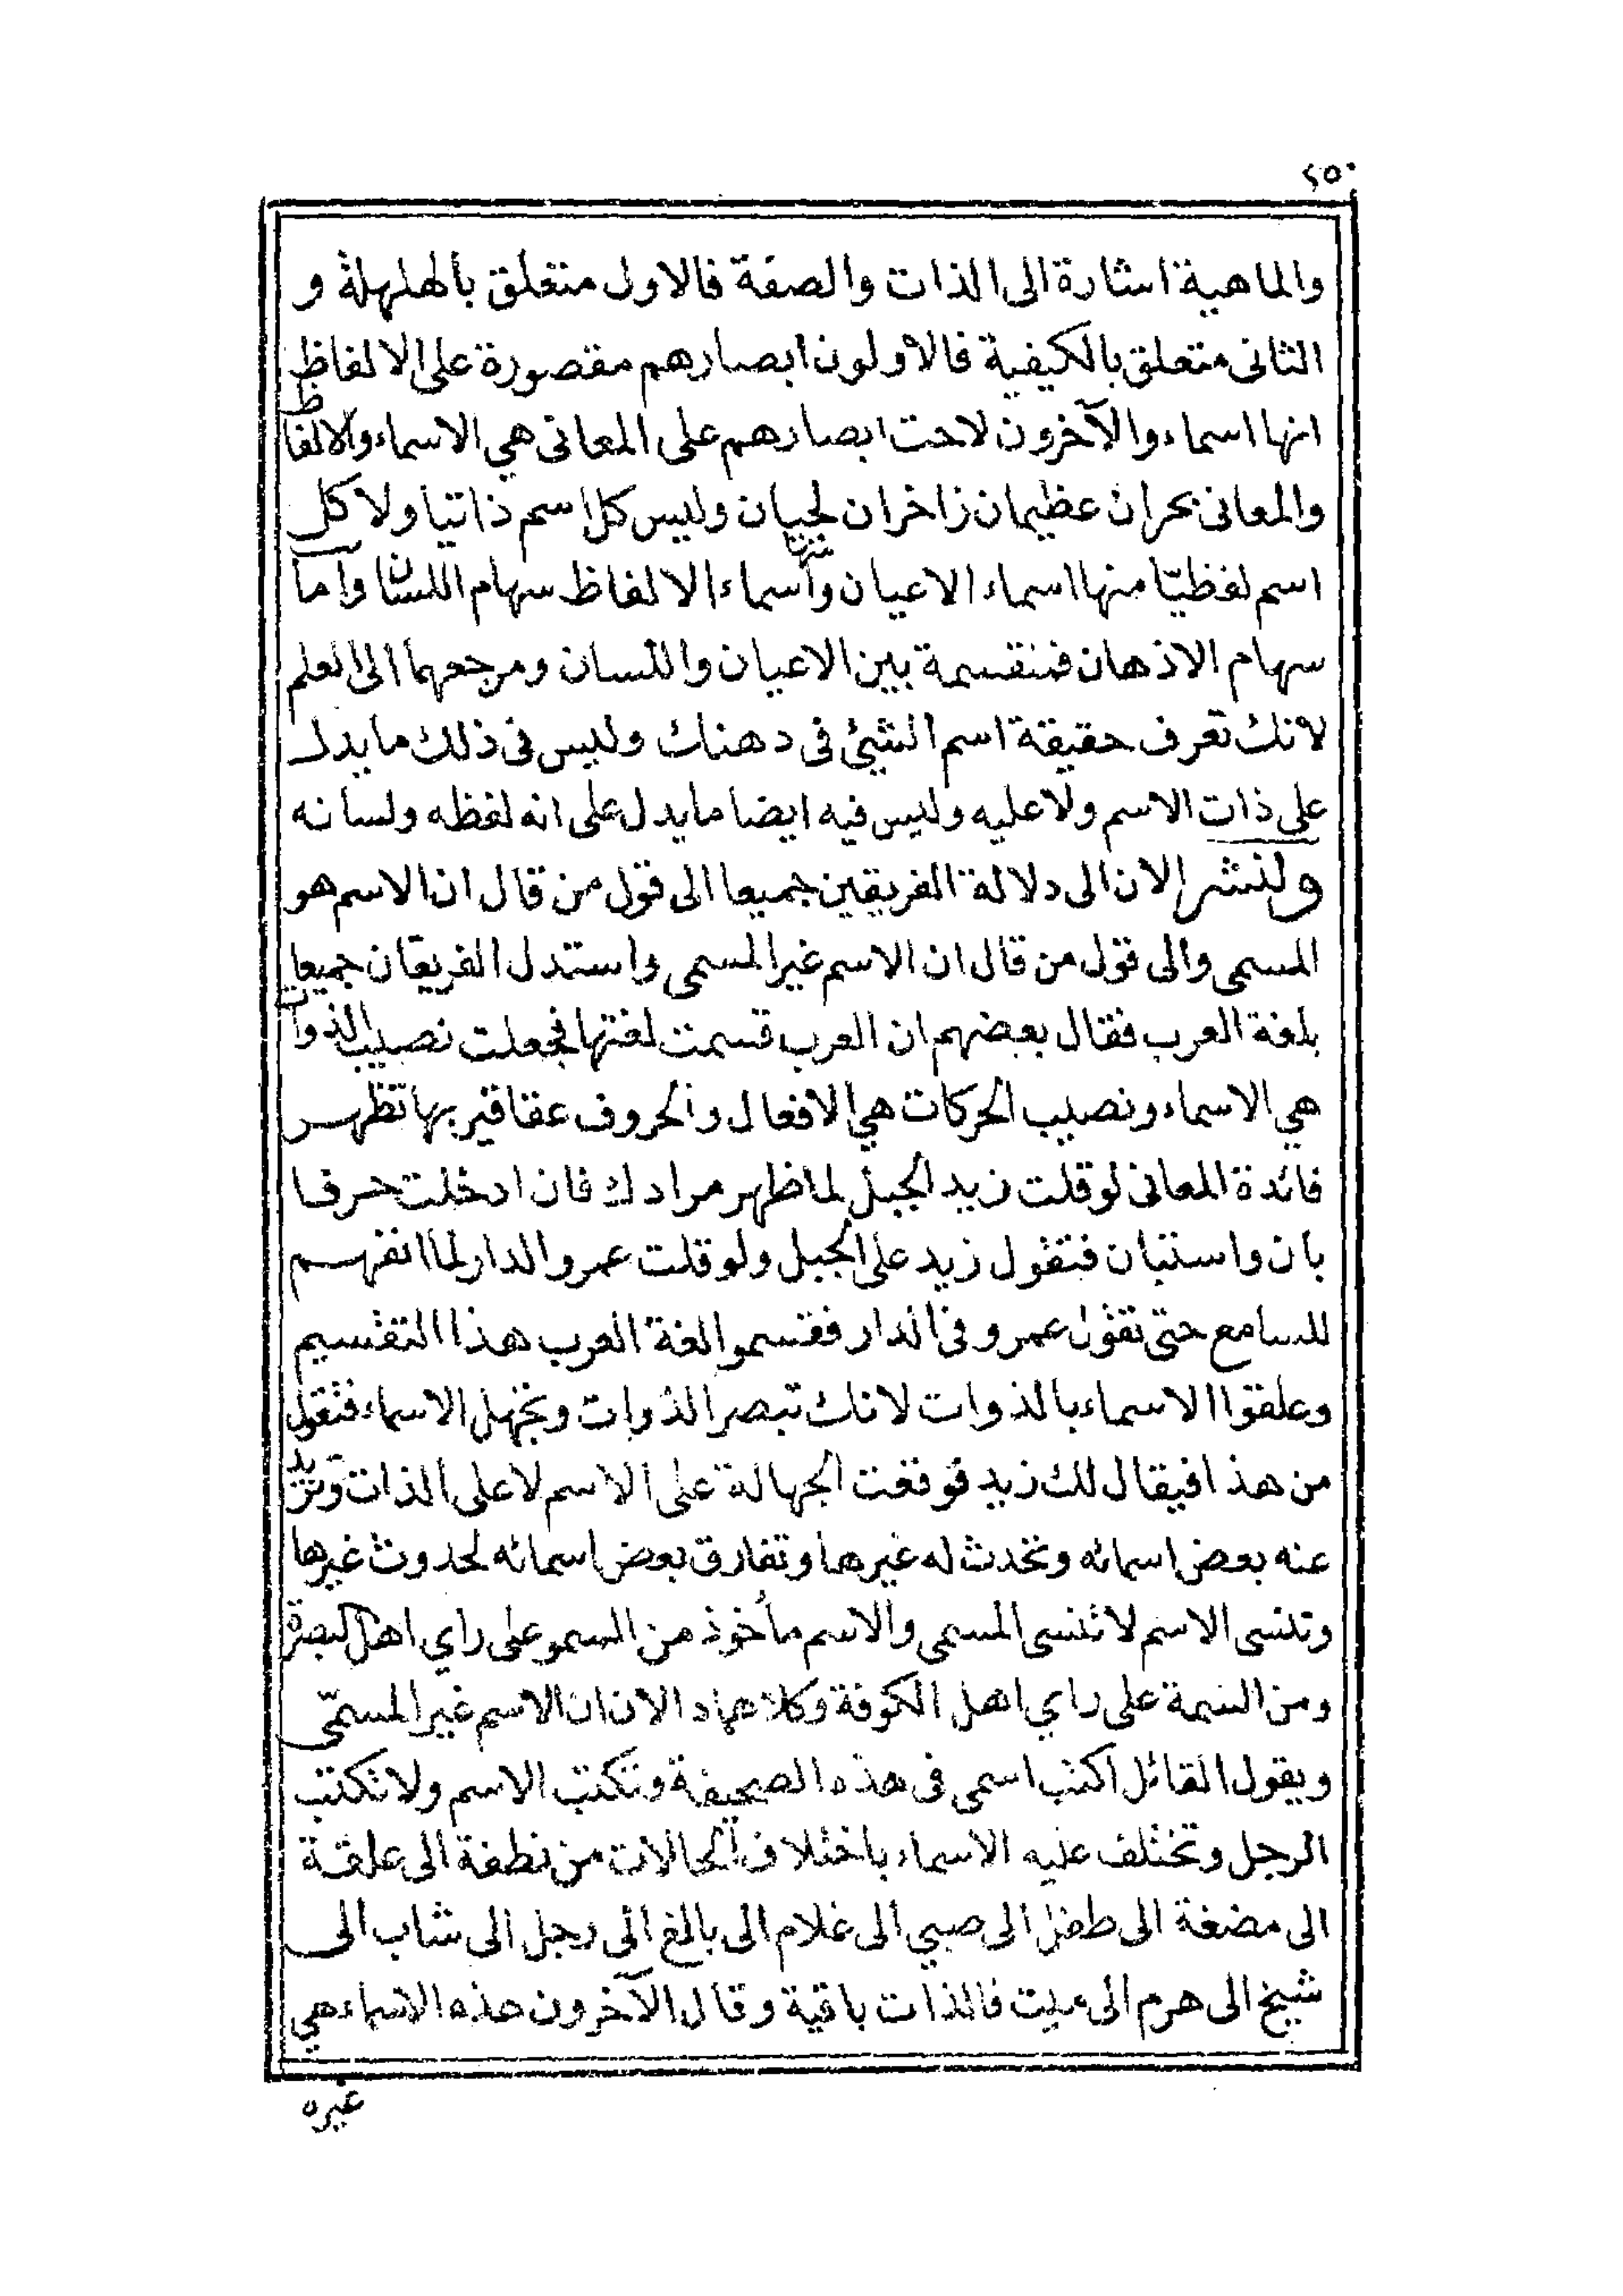 ٢٥٠
والماهية اشارة الى الذات والصفة فالاول متعلق بالهلهلة و
الثانى متعلق بالكيفية فالاولون ابصارهم مقصورة على الالفاظ
انها اسماء والآخرون لاحت ابصارهم على المعانى هي الاسماء والالفاظ
والمعانى بحران عظيمان زاخران لجيان وليس كل اسم ذاتيا ولا كل
اسم لفظيّا منها اسماء الاعيان ومنها اسماء الالفاظ سهام اللسان واما
سهام الاذهان فمنقسمة بين الاعيان واللسان ومرجعهما الى العلم
لانك تعرف حقيقة اسم الشيئ فى دهناك وليس فى ذلك ما يدل
على ذات الاسم ولا عليه وليس فيه ايضا ما يدل على انه لفظه ولسانه
ولنشر الان الى دلالة الفريقين جميعا الى قول من قال ان الاسم هو
المسمى والى قول من قال ان الاسم غير المسمى واستدل الفريقان جميعا
بلغة العرب فقال بعضهم ان العرب قسمت لغتها فجعلت نصيب الذوات
هي الاسماء ونصيب الحركات هي الافعال والحروف عقاقير بها تظهر
فائدة المعانى لو قلت زيد الجبل لما ظهر مرادك فان ادخلت حرفا
بان واستبان فتقول زيد على الجبل ولو قلت عمرو الدار لما انفهم
للسامع حتى تقول عمرو فى الدار فقسموا لغة العرب هذا التقسيم
وعلقوا الاسماء بالذوات لانك تبصر الذوات وتجهل الاسماء فتقول
من هذا فيقال لك زيد فوقعت الجهالة على الاسم لا على الذات وتزيد
عنه بعض اسمائه وتحدث له غيرها وتفارق بعض اسمائه لحدوث غيرها
وتنسى الاسم لا تنسى المسمى والاسم مأخوذ من السمو على راي اهل البصرة
ومن السمة على راي اهل الكوفة وكلاهما دالان ان الاسم غير المسمّى
ويقول القائل اكتب اسمى فى هذه الصحيفة وتكتب الاسم ولا تكتب
الرجل وتختلف عليه الاسماء باختلاف الحالات من نطفة الى علقة
الى مضغة الى طفل الى صبي الى غلام الى بالغ الى رجل الى شاب الى
شيخ الى هرم الى ميت فالذات باقية وقال الآخرون هذه الاسماء هي
غيره